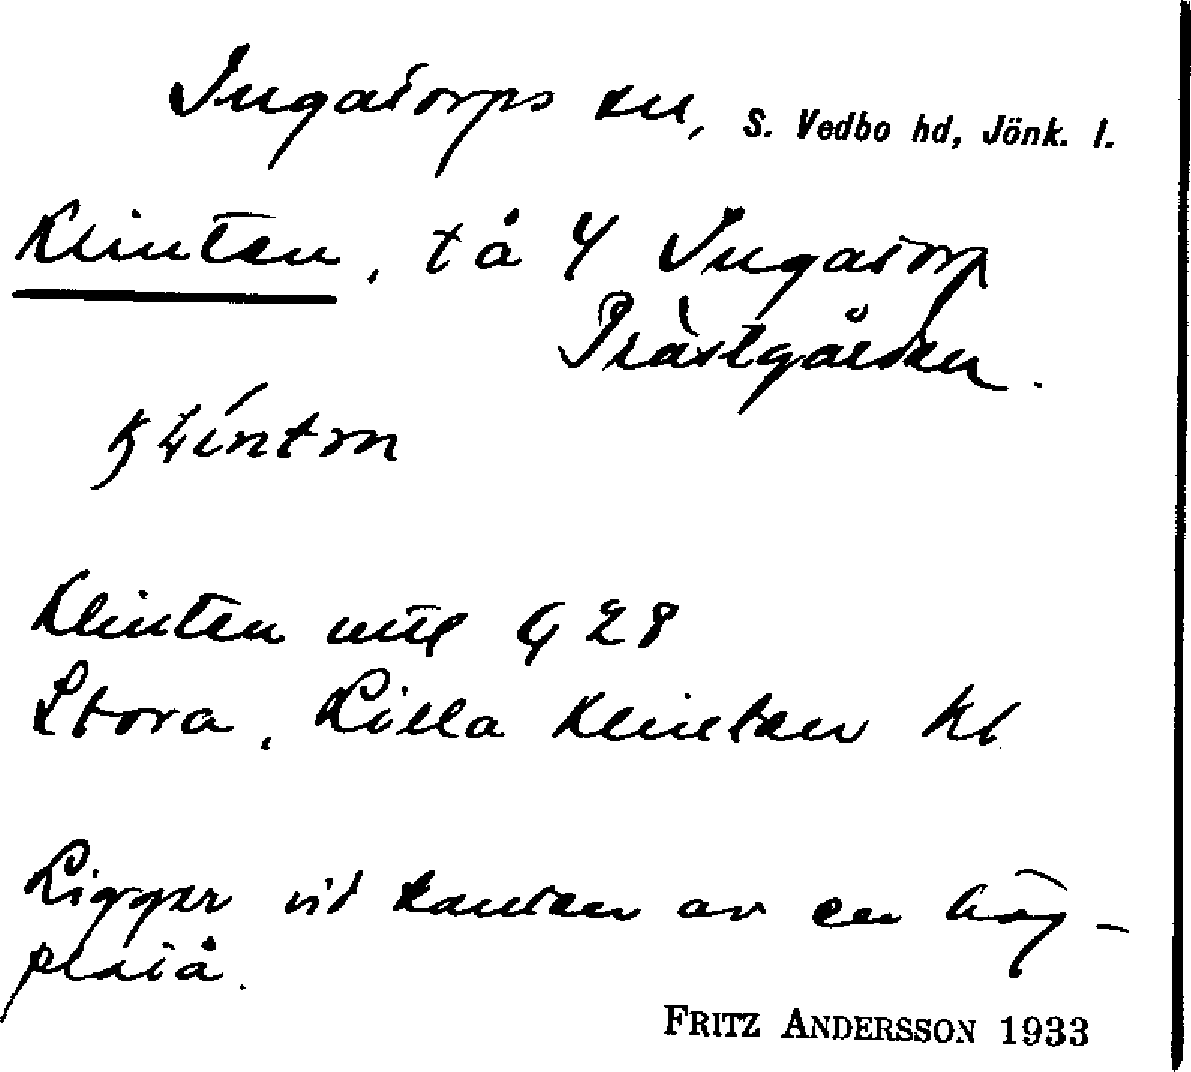 Ingatorps sn, S. Vedbo hd, Jönk. l.
Klinten, t å 4 Ingatorp
Prästgården.
Klinten G 28
Stora, Lilla Klinten Kl
Ligger vid kanten av en hög-
platå.
FRITZ ANDERSSON 1933